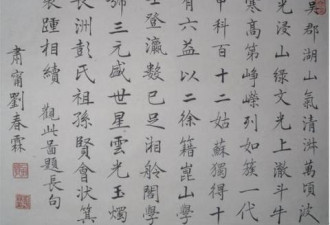 吳郡湖山氣清淑萬頃波
光浸山綠文光上激斗牛
寒高第崢嶸列如簇一代
甲科百十二姑蘇獨得十
有六益以二徐籍崑山學
士登瀛數已足湘舲閣學
號三元盛世星雲光玉燭
長洲彭氏祖孫賢會狀箕
裘踵相續 觀此啚題長句
肅甯劉春霖